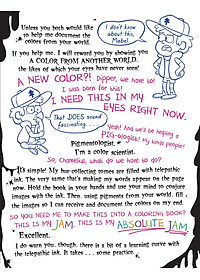 Unless you both would like
to help me document the
colors from your world.
I don't know
about this,
Mabel.
If you help me, I will reward you by showing you
A COLOR FROM ANOTHER WORLD,
the likes of which your eyes have never seen!
A NEW COLOR?! Dipper, we have to!
I was born for this!
I NEED THIS IN MY
EYES RIGHT NOW.
That DOES sound
fascinating...
Yeah! And we'll be helping a
PIG-ologist! My kinda people!
Pigmentologist.
I'm a color scientist.
So, Chamelius, what do we have to do?
It's simple! My hue collecting tomes are filled with telepathic
ink. The very same that's making my words appear on the page
now. Hold the book in your hands and use your mind to conjure
images with the ink. Then, using pigments from your world, fill
the images so I can receive and document the colors on my end.
SO YOU NEED US TO MAKE THIS INTO A COLORING BOOK?
THIS IS MY JAM. THIS IS MY ABSOLUTE JAM.
Excellent.
I do warn you, though, there is a bit of a learning curve with
the telepathic ink. It takes . . . some practice.